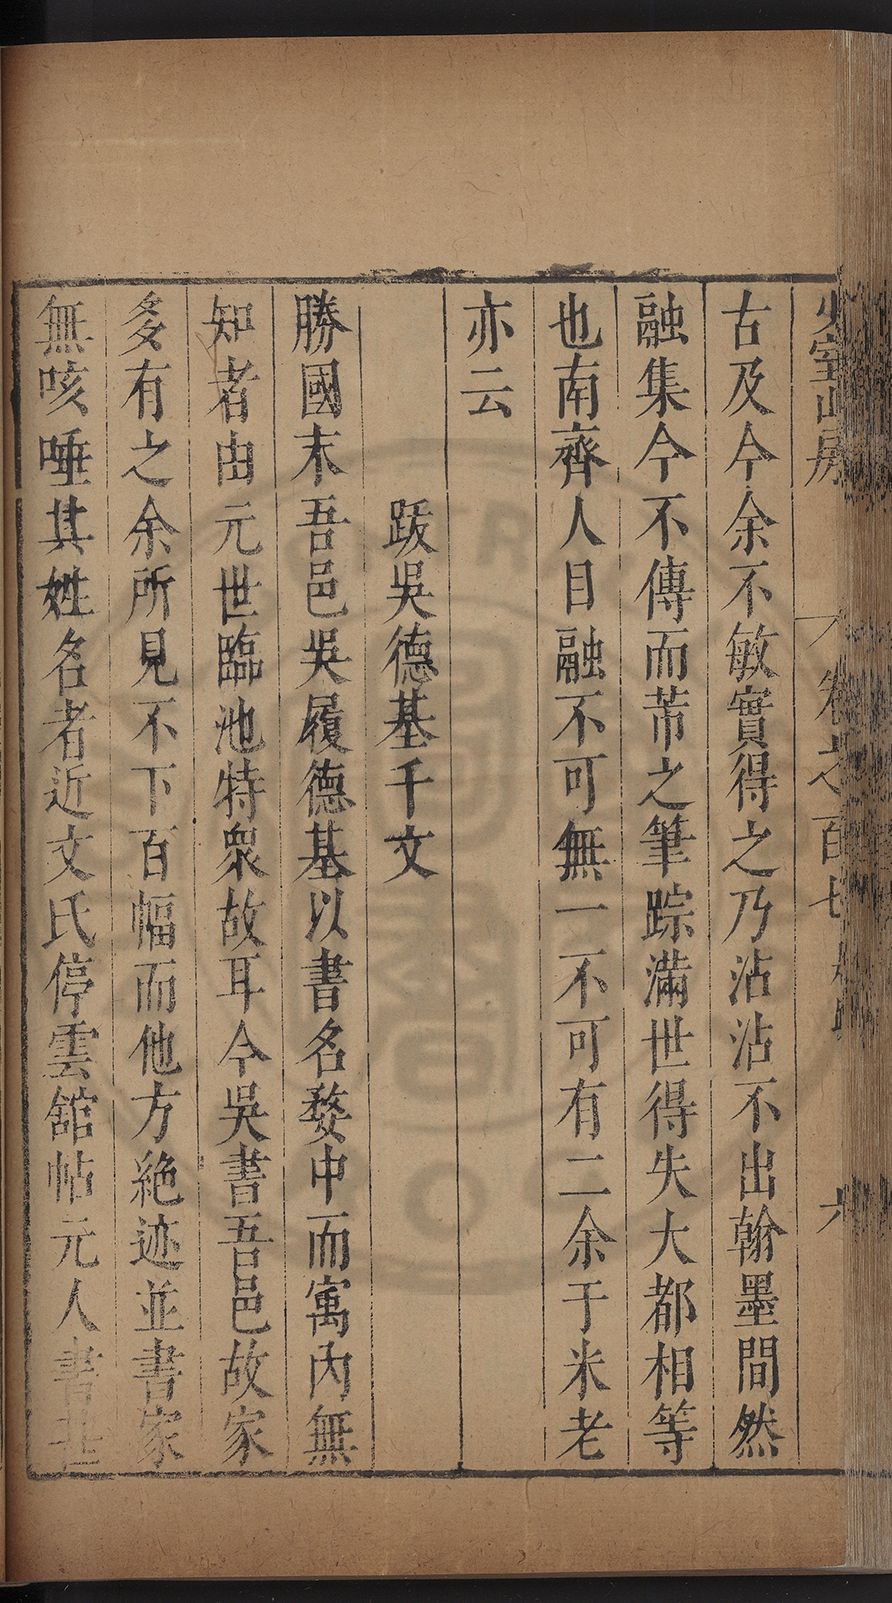 少室山房
卷之百七
六
古及今余不敏實得之乃沾沾不出翰墨間然
融集今不傳而芾之筆踪滿世得失大都相等
也南齊人目融不可無一不可有二余于米老
亦云
跋吳德基千文
勝國末吾邑吳履德基以書名婺中而寓內無
知者由元世臨池特衆故耳今吳書吾邑故家
多有之余所見不下百幅而他方絶迹並書家
無咳唾其姓名者近文氏停雲舘帖元人書